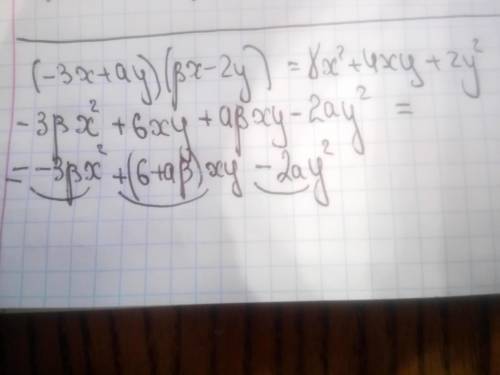 (-3x+ay)(βx-2y) = 8x²+4xy+2y²
-3βx²+6xy+aβxy-2ay² =
=-3βx²+(6+aβ)xy-2ay²